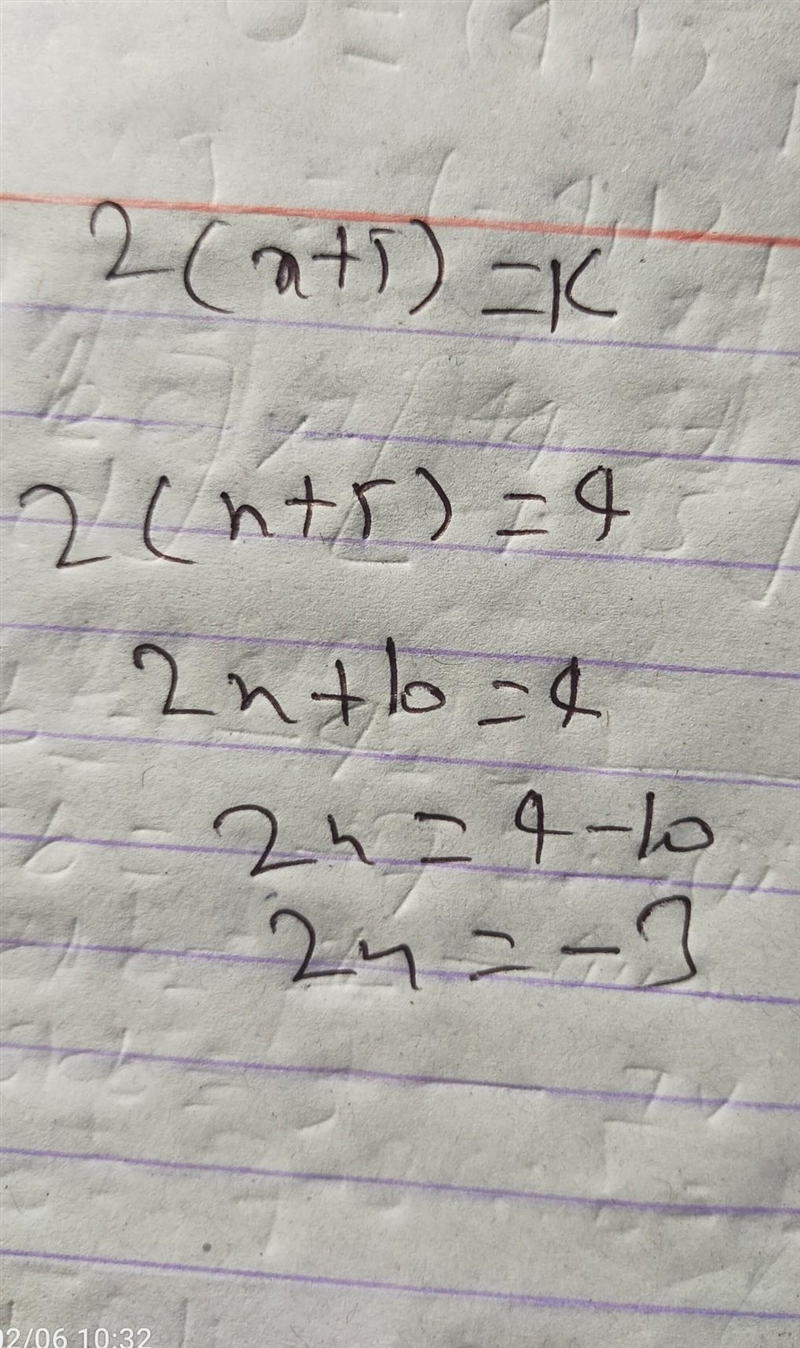 2(x+5)=K
2(x+5)=4
2x+10=4
2x=4-10
2x=-3
02/06 10:32